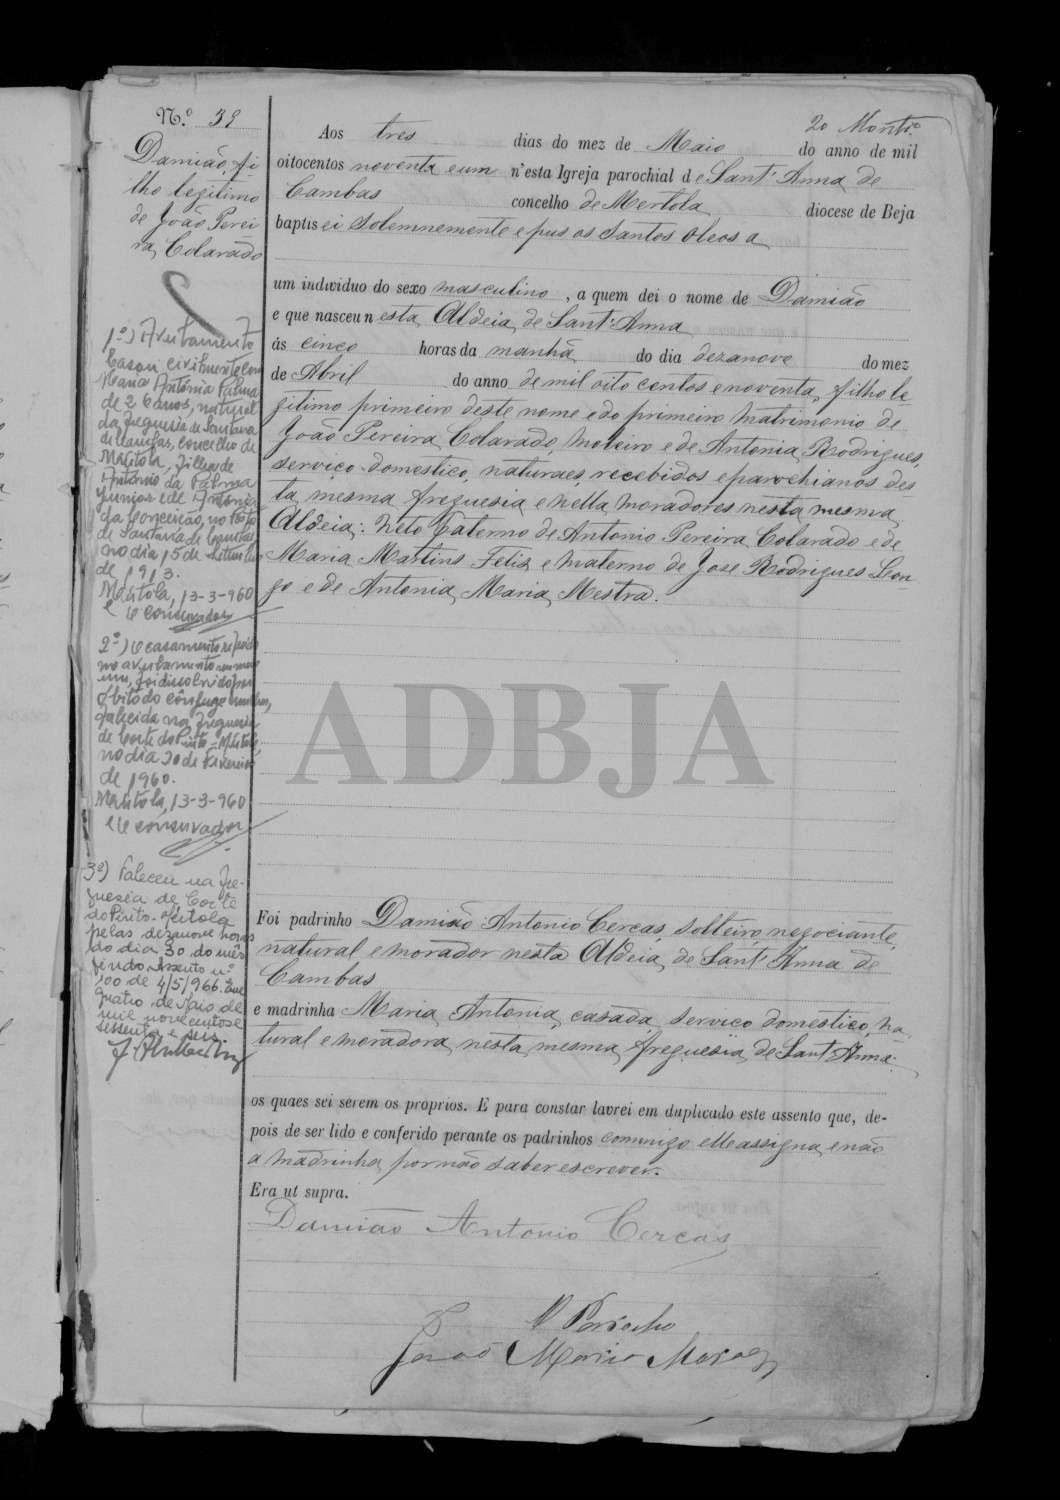 N.º 39
Damião, fi-
lho legitimo
de João Perei-
ra Colarado
1º) Averbamento
Casou civilmente com
Maria Antónia Palma
de 26 anos, natural
da freguesia de Santana
de Cambas, concelho de
Mértola, filha de
António da Palma
Junior e de Antónia
da Conceição, no Posto
de Santana de Cambas,
no dia 15 de
de 1913.
Mértola, 13-3-960
O conservador
2º) O casamento referido
no averbamento numero
um, foi dissolvido por
óbito do cônjuge mulher,
falecida na freguesia
de Corte do Pinto - Mértola,
no dia 20 de Fevereiro
de 1960.
Mértola, 13-3-960
O conservador
3º) Faleceu na fre-
guesia de Corte
do Pinto - Mértola
pelas dezanove horas
do dia 30 do mês
findo. Assento nº
100 de 4/5/966. Em
quatro de Maio de
mil novecentos e
sessenta e seis.
20 Mont.º
Aos tres dias do mez de Maio do anno de mil
oitocentos noventa e um n'esta Igreja parochial de Sant'Anna de
Cambas concelho de Mertola diocese de Beja
baptisei solemnemente e pus os Santos Oleos a
um individuo do sexo masculino, a quem dei o nome de Damião
e que nasceu nesta Aldeia de Sant'Anna
ás cinco horas da manhã do dia dezanove do mez
de Abril do anno de mil oito centos e noventa, filho le-
gitimo primeiro deste nome e do primeiro matrimonio de
João Pereira Colarado, moleiro e de Antonia Rodrigues,
serviço domestico, naturaes, recebidos e parochianos des
ta mesma freguesia e nella moradores nesta mesma
Aldeia: neto paterno de Antonio Pereira Colarado e de
Maria Martins Felix e materno de Jose Rodrigues Lon-
go e de Antonia Maria Mestra.
ADBJA
Foi padrinho Damião Antonio Cercas, solteiro, negociante,
natural e morador nesta Aldeia de Sant'Anna de
Cambas
e madrinha Maria Antonia, casada, serviço domestico, na-
tural e moradora nesta mesma freguesia de Sant'Anna:
os quaes sei serem os proprios. E para constar lavrei em duplicado este assento que, de-
pois de ser lido e conferido perante os padrinhos commigo elle assigna, e não
a madrinha por não saber escrever.
Era ut supra.
Damião Antonio Cercas
O Parocho
João Maria